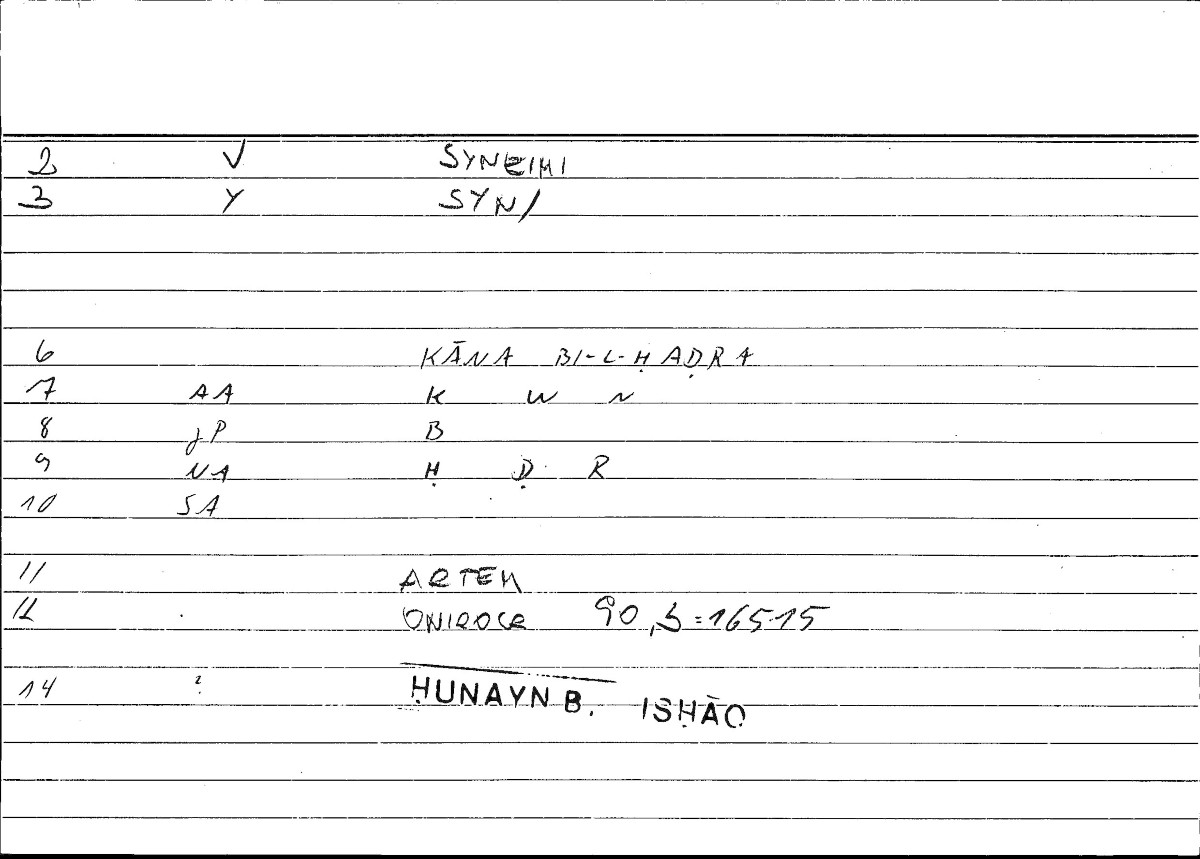 2 V SYNEIMI
3 Y SYN/
6 KĀNA BI-L-ḤAḌRA
7 AA K W N
8 JP B
9 NA Ḥ Ḍ R
10 SA
11 ARTEM
12 ONIROCR 90,5=165,15
14 2. ḤUNAYN B. ISḤĀQ